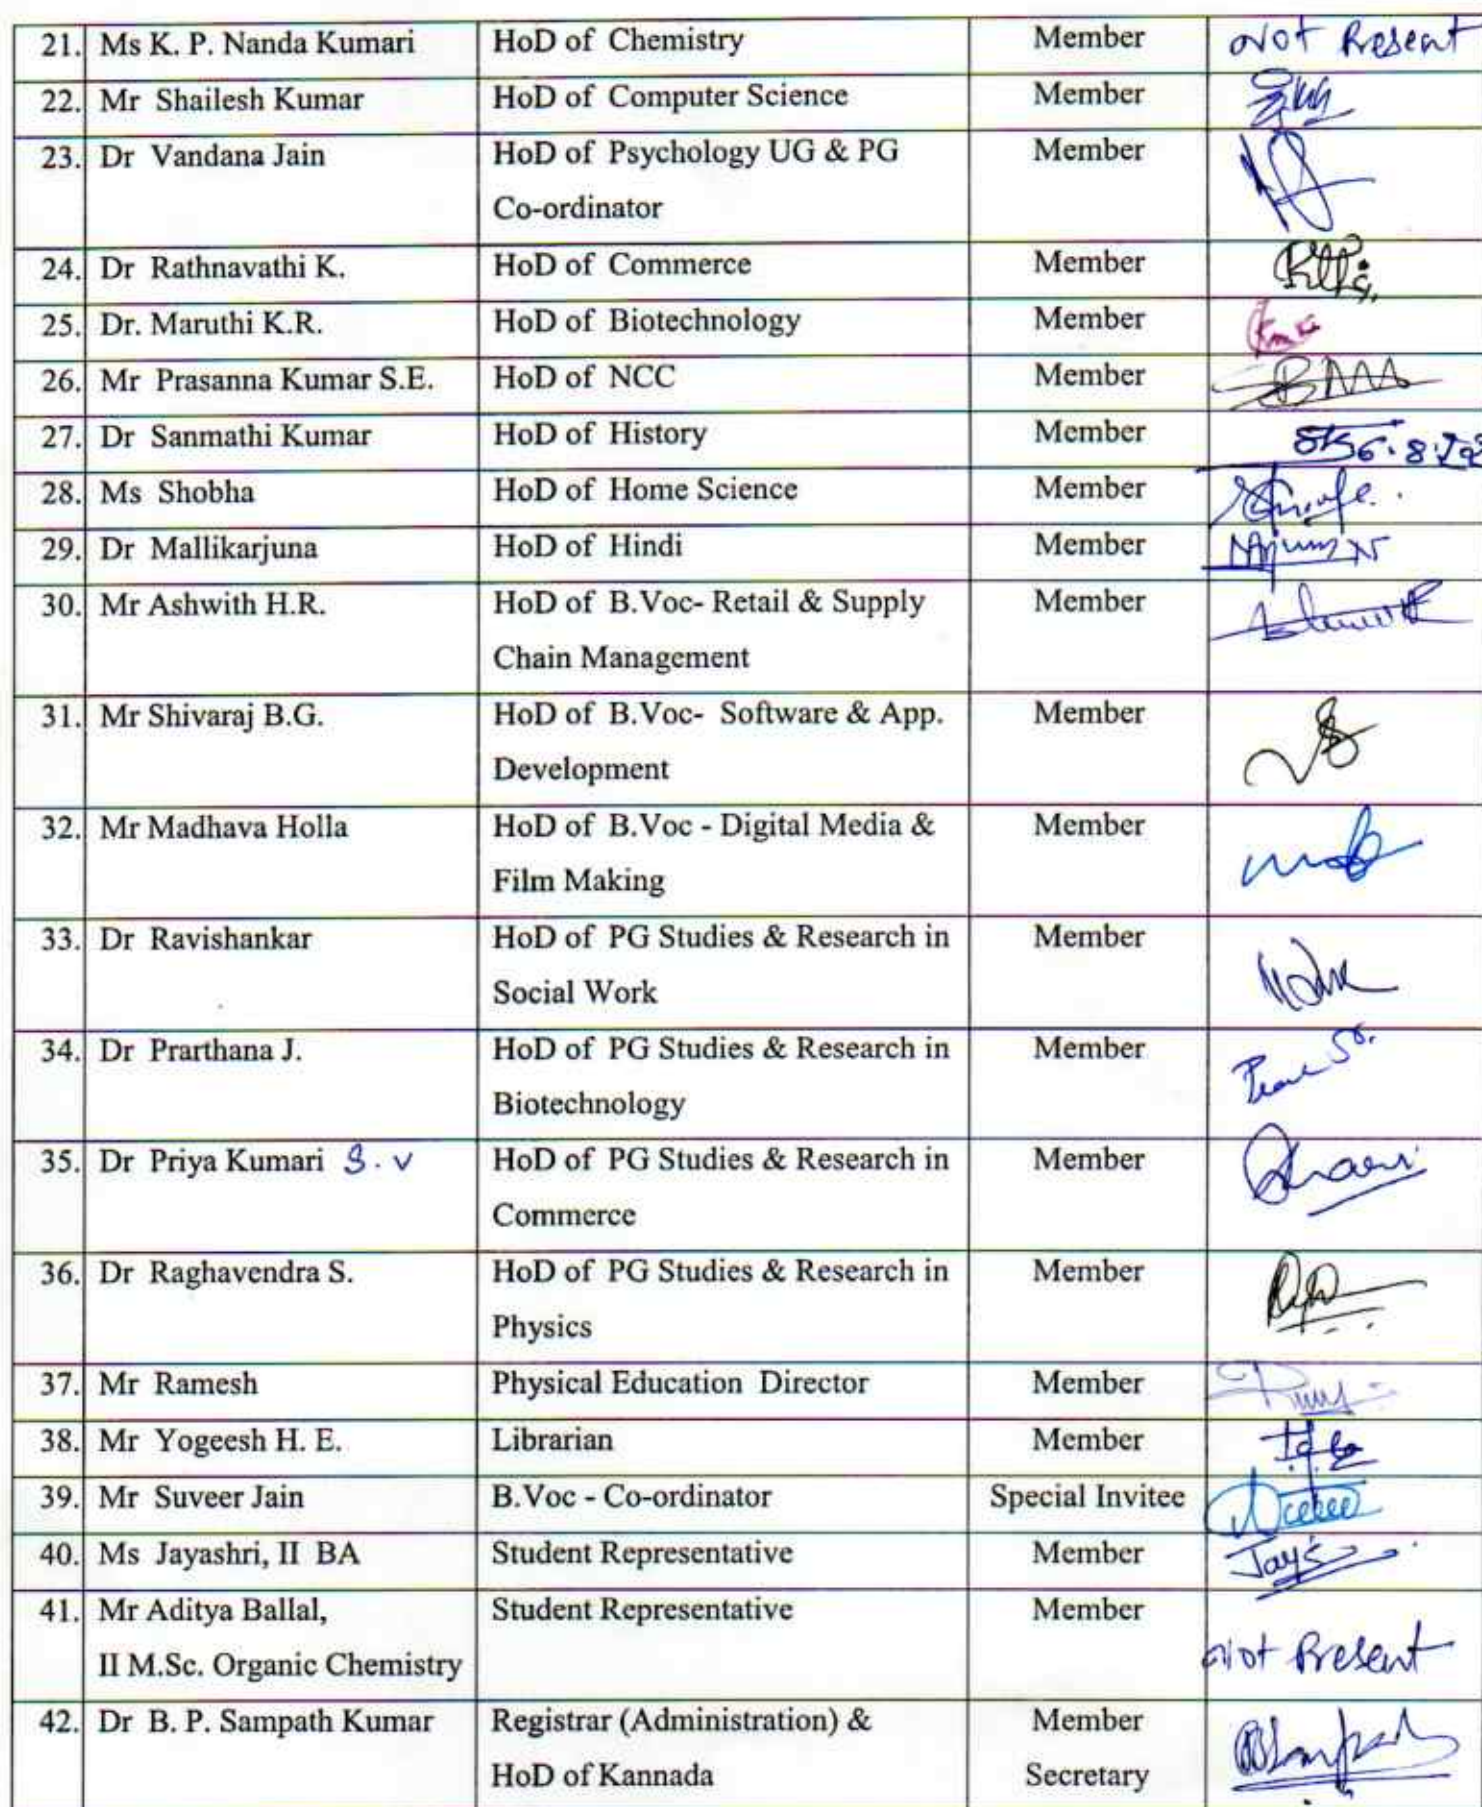 21. Ms K. P. Nanda Kumari HoD of Chemistry Member Not Present
22. Mr Shailesh Kumar HoD of Computer Science Member
23. Dr Vandana Jain HoD of Psychology UG & PG Member
Co-ordinator
24. Dr Rathnavathi K. HoD of Commerce Member
25. Dr. Maruthi K.R. HoD of Biotechnology Member
26. Mr Prasanna Kumar S.E. HoD of NCC Member
27. Dr Sanmathi Kumar HoD of History Member
28. Ms Shobha HoD of Home Science Member
29. Dr Mallikarjuna HoD of Hindi Member
30. Mr Ashwith H.R. HoD of B.Voc- Retail & Supply Member
Chain Management
31. Mr Shivaraj B.G. HoD of B.Voc- Software & App. Member
Development
32. Mr Madhava Holla HoD of B.Voc - Digital Media & Member
Film Making
33. Dr Ravishankar HoD of PG Studies & Research in Member
Social Work
34. Dr Prarthana J. HoD of PG Studies & Research in Member
Biotechnology
35. Dr Priya Kumari S. V HoD of PG Studies & Research in Member
Commerce
36. Dr Raghavendra S. HoD of PG Studies & Research in Member
Physics
37. Mr Ramesh Physical Education Director Member
38. Mr Yogeesh H. E. Librarian Member
39. Mr Suveer Jain B.Voc - Co-ordinator Special Invitee
40. Ms Jayashri, II BA Student Representative Member
41. Mr Aditya Ballal, Student Representative Member
II M.Sc. Organic Chemistry Not Present
42. Dr B. P. Sampath Kumar Registrar (Administration) & Member
HoD of Kannada Secretary